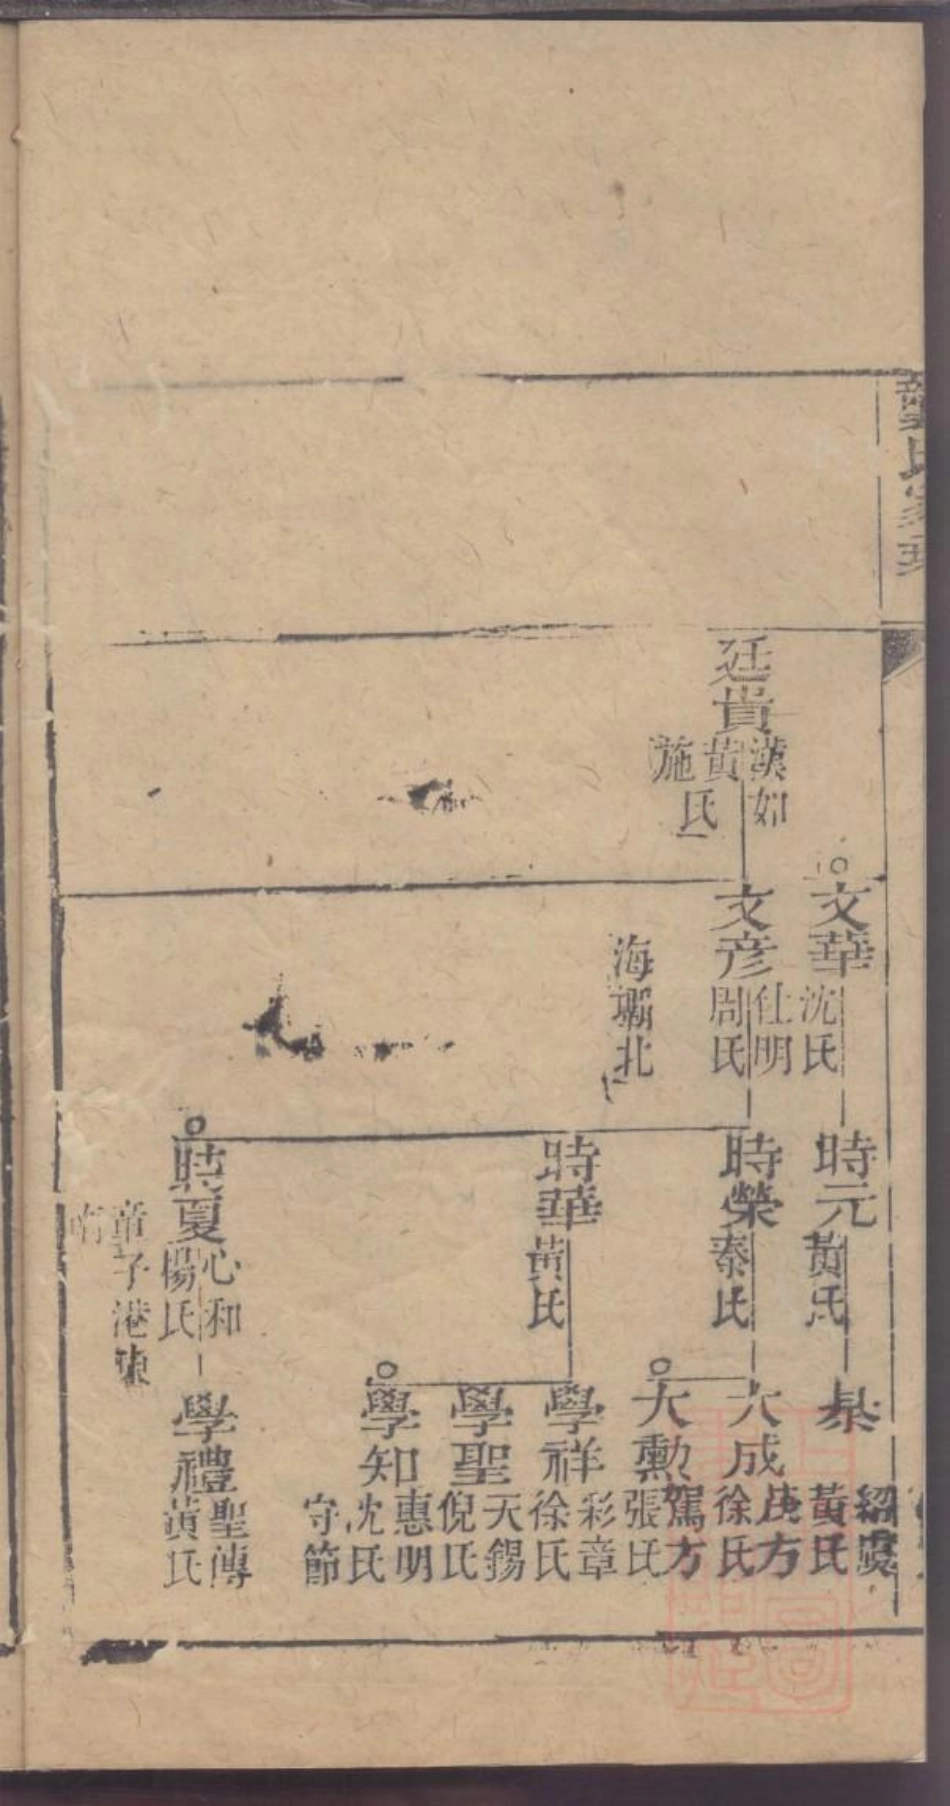 龔氏家
廷貴
漢如
黃
施
氏
文華
沈氏
文彦
仕明
周氏
海壩北
時元
黃氏
時榮
秦氏
時華
黃氏
時夏
心和
楊氏
章子港東
杲
紹虞
黃氏
大成
茂方
徐氏
大勳
駕方
張氏
學祥
彩章
徐氏
學聖
天錫
倪氏
學知
惠明
沈氏
守節
學禮
聖傳
黃氏